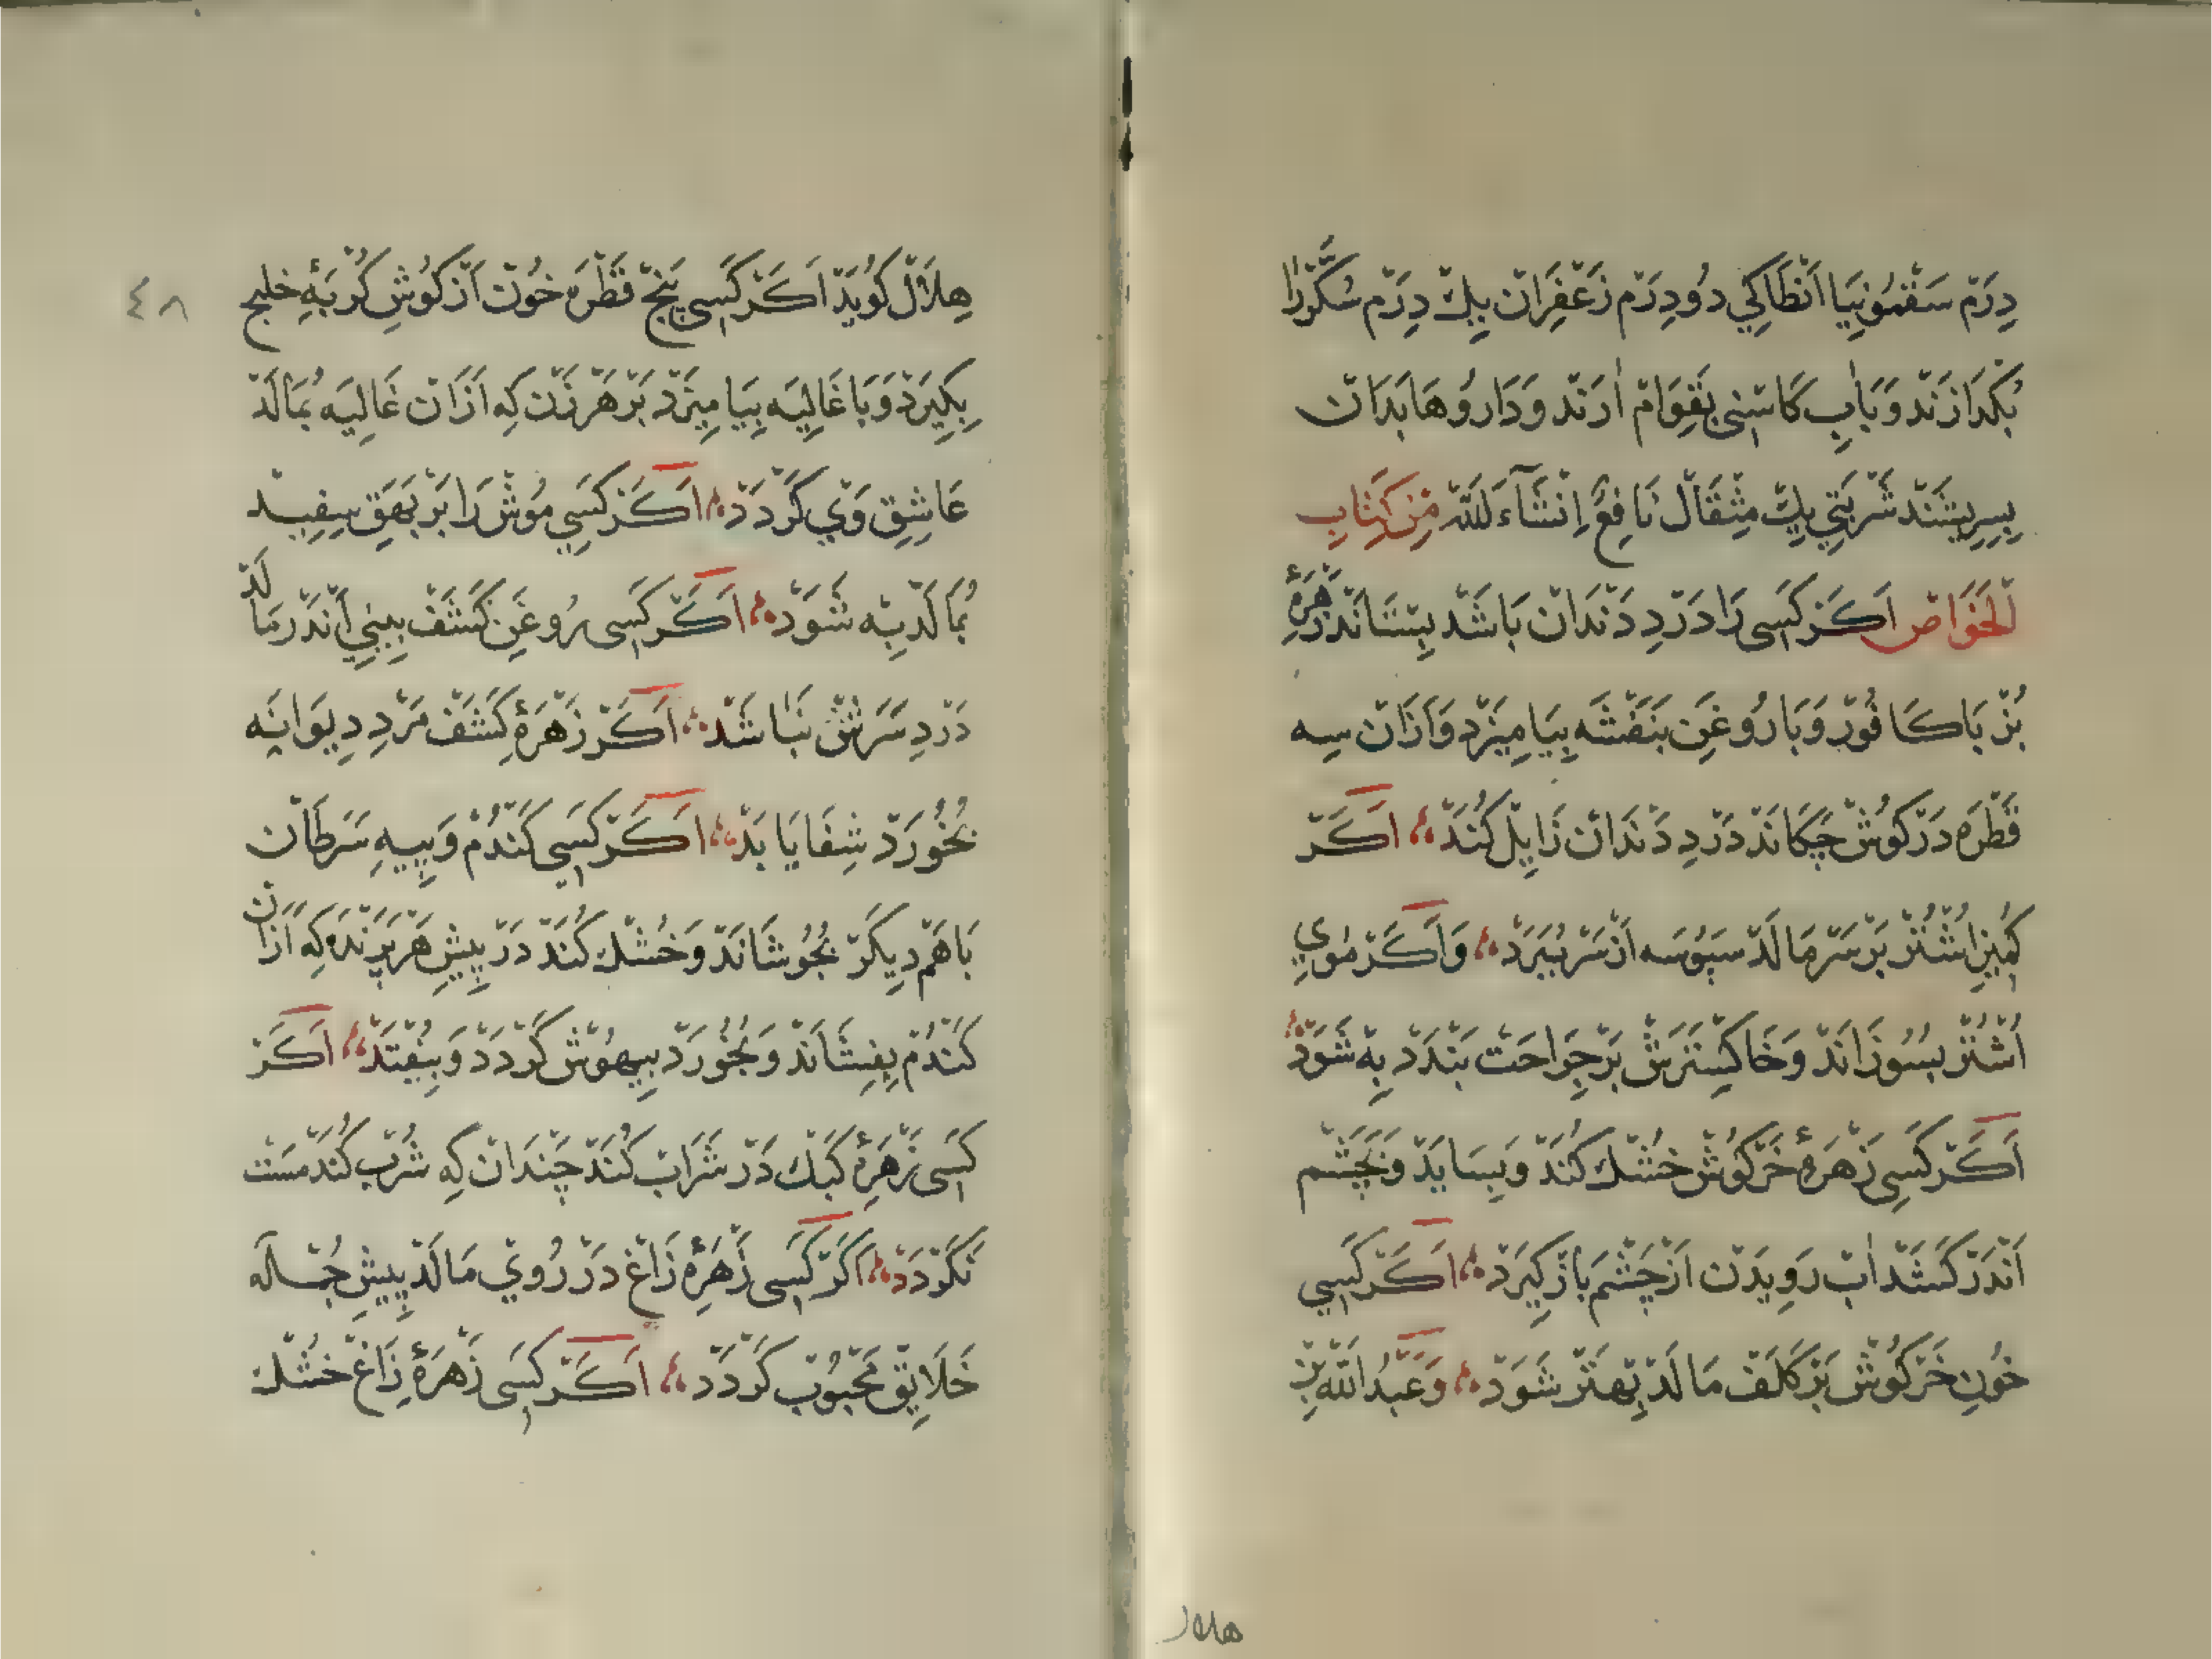 دِرَمْ سَقْمُونِیَا اَنْطَاکِي دُودِرَمْ زَعْفِرَانْ یِكْ دِرَمْ سُکَّرْرٰا
بُکْدَازَنْدْ وَبَاٰبِ کَاسْنِی بَقِوَامْ اٰرَنْدْ وَدَارُوهَا بَدَانْ
بِسِرِیشَنْدْ شَرْبَتِي یِكْ مِثْقَالْ نَافِعْ اِنْشَآءَ لِلّٰهْ مِنْ کِتَابِ
اَلْخَوَاصْ اَکَرْکَسِی رَا دَرْدِ دَنْدَانْ بَاشَدْ بِسْتَانَدْ زَهْرَۀِ
بُزْ بَاکَافُورْ وَبَارُوغَنِ بَنَفْشَه بِیَامِیزَدْ وَاَزَانْ سِه
قَطْرَه دَرْکُوشْ چَکَانَدْ دَرْدِ دَنْدَانْ زَایِلْ کُنَدْ اَکَرْ
کُمِیزِ اُشْتُرْ بَرْسَرْمَالَدْ سَبُوسَه اَزْسَرْ بُبَرَدْ وَاَکَرْ مُویِ
اُشْتُرْ بسُوزَانَدْ وَخَاکِسْتَرَشْ بَرْجِرَاحَتْ بَنْدَدْ بِهْ شَوَدْ
اَکَرْکَسِی زَهْرَۀِ خَرْکُوشْ خُشْكْ کُنَدْ وَبِسَایَدْ وَبَچَشْم
اَنْدَرْکَشَدْ اٰبْ رَوِیدَنْ اَزْچَشْمَ بَازْکِیرَدْ اَکَرْکَسِي
خُونِ خَرْکُوشْ بَرْکَلَفْ مَالَدْ بِهْتَرْ شَوَدْ وَعَبْدُ اللّٰهْ بِنْ
هلال
٤٨
هِلَاَلْ کُویَدْ اَکَرْکَسِی پَنْجْ قَطْرَه خُونْ اَزْکُوشِ کُرْبَۀِ خلیج
بِکِیرَدْ وَبَا غَالِیَه بِیَامِیزَدْ بَرْهَرْزَنْ کِه اَزَانْ غَالِیَه بُمَالَدْ
عَاشِقِ وَيْ کَرْدَدْ اَکَرْکَسِي مُوشْ رَا بَرْ بَهَقِ سِفِیدْ
بُمَالَدْ بِهْ شَوَدْ اَکَرْکَسِی رُوغَنِ کَشَفْ بِبِینِي اَنْدَرْمَالَدْ
دَرْدِ سَرَشْ نَبَاشَدْ اَکَرْ زَهْرَۀِ کَشَفْ مَرْدِ دِیوَانَه
بُخُورَدْ شِفَا یَابَدْ اَکَرْکَسِي کَنْدُمْ وَپِیهِ سَرَطَانْ
بَاهَمْ دِیکَرْ بُجُوشَانَدْ وَخُشْكْ کُنَدْ دَرْ پِیشِ هَرْپَرَنْدَه کِه اَزَانْ
کَنْدُمْ بِفِشَانَدْ وَبُخُورَدْ بِیهُوشْ کَرْدَدْ وَبِیُفْتَدْ اَکَرْ
کَسِی زَهْرَۀِ کَبْكْ دَرْ شَرَابْ کُنَدْ چَنْدَانْ کِه شُرْبْ کُنَدْ مَسْت
نَکَرْدَدْ اَکَرْکَسِی زَهْرَۀِ زَاغْ دَرْ رُويْ مَالَدْ پِیشِ جُمْلَه
خَلَایِقْ مَحْبُوبْ کَرْدَدْ اَکَرْکَسِی زَهْرَۀِ زَاغْ خُشْكْ